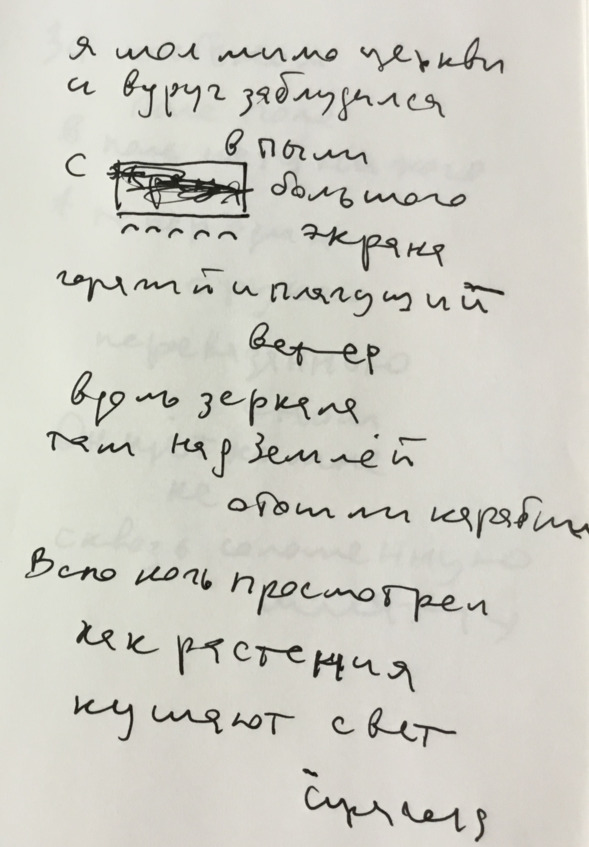 я шол мимо церкви
и вуруг заблудился
в пыли
с большого
экрана
горятий и плягущий
ветер
вдоль зеркала
там над землёй
отошли карабли
Всю ночь просмотрел
как растения
кушают свет